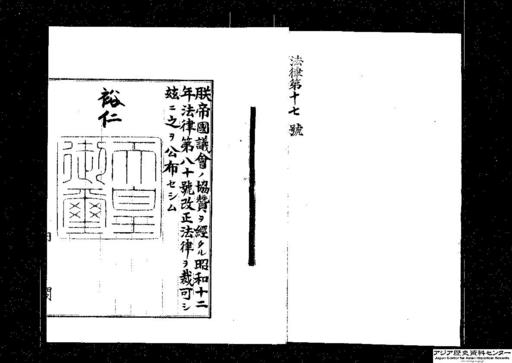 法律第十七號
朕帝國議會ノ協贊ヲ經タル昭和十二
年法律第八十號改正法律ヲ裁可シ
玆ニ之ヲ公布セシム
裕仁
天皇
御璽
内閣
アジア歴史資料センター
Japan Center for Asian Historical Records